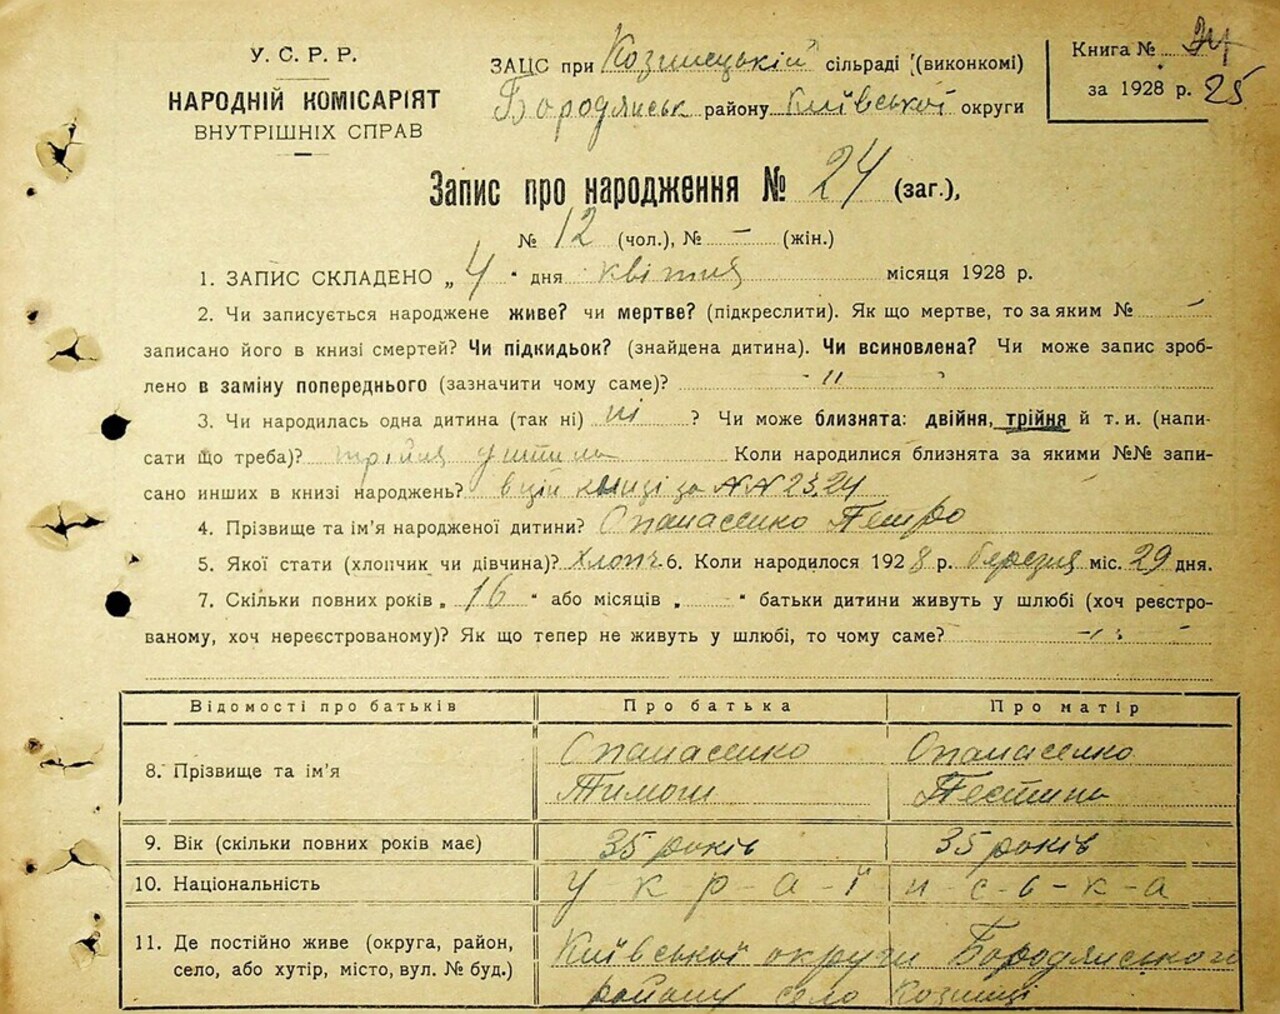 У. С. Р. Р.
НАРОДНІЙ КОМІСАРІЯТ
ВНУТРІШНІХ СПРАВ
ЗАЦС при Козинецькій сільраді (виконкомі)
Бородянськ району Київської округи
Книга № 24
за 1928 р. 25
Запис про народження № 24 (заг.),
№ 12 (чол.), № – (жін.)
1. ЗАПИС СКЛАДЕНО „ 4 “ дня квітня місяця 1928 р.
2. Чи записується народжене живе? чи мертве? (підкреслити). Як що мертве, то за яким № –
записано його в книзі смертей? Чи підкидьок? (знайдена дитина). Чи всиновлена? Чи може запис зроб-
лено в заміну попереднього (зазначити чому саме)? - " -
3. Чи народилась одна дитина (так ні) ні ? Чи може близнята: двійня, трійня й т. и. (напи-
сати що треба)? трійня Коли народилися близнята за якими №№ запи-
сано инших в книзі народжень? в цій книзі за NN 23,24
4. Прізвище та ім’я народженої дитини? Опанасенко Петро
5. Якої стати (хлопчик чи дівчина)? хлопч. 6. Коли народилося 1928 р. березня міс. 29 дня.
7. Скільки повних років „ 16 “ або місяців „ “ батьки дитини живуть у шлюбі (хоч реєстро-
ваному, хоч нереєстрованому)? Як що тепер не живуть у шлюбі, то чому саме?
Відомості про батьків Про батька Про матір
8. Прізвище та ім’я Опанасенко Опанасенко
Тимош
9. Вік (скільки повних років має) 35 років 35 років
10. Національність у к р - а - ї н - с - ь - к - а
11. Де постійно живе (округа, район, Київської округи Бородянського
село, або хутір, місто, вул. № буд.) району село Козинці